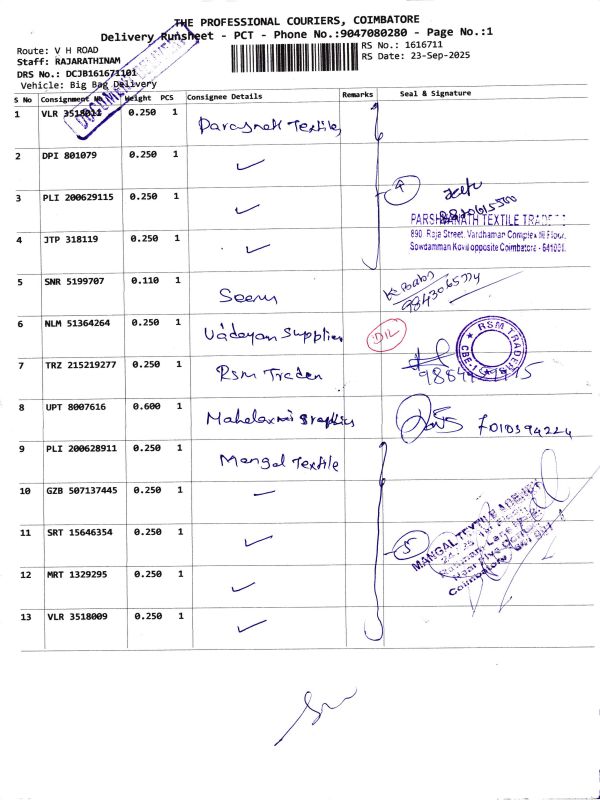 THE PROFESSIONAL COURIERS, COIMBATORE
Delivery Runsheet - PCT - Phone No.:9047080280 - Page No.:1
Route: V H ROAD
RS No.: 1616711
Staff: RAJARATHINAM
RS Date: 23-Sep-2025
DRS No.: DCJB161671101
Vehicle: Big Bag Delivery
S No Consignment No Weight PCS Consignee Details Remarks Seal & Signature
1 VLR 3518011 0.250 1 Parasnath Textiles
2 DPI 801079 0.250 1 ✓
3 PLI 200629115 0.250 1 ✓
4 JTP 318119 0.250 1 ✓
4
PARSHWANATH TEXTILE TRADERS
890, Raja Street, Vardhaman Complex III Floor,
Sowdamman Kovil opposite Coimbatore - 641001.
5 SNR 5199707 0.110 1 K. Babu
9843065774
6 NLM 51364264 0.250 1 Vadayan Supplies D/L
7 TRZ 215219277 0.250 1 Rsm Trader
RSM TRADERS
CBE-1
8 UPT 8007616 0.600 1 Mahalaxmi Graphics 7010394224
9 PLI 200628911 0.250 1 Mangal Textile
10 GZB 507137445 0.250 1
11 SRT 15646354 0.250 1 ✓
12 MRT 1329295 0.250 1 ✓
13 VLR 3518009 0.250 1 ✓
5
MANGAL TEXTILE AGENCY
Coimbatore